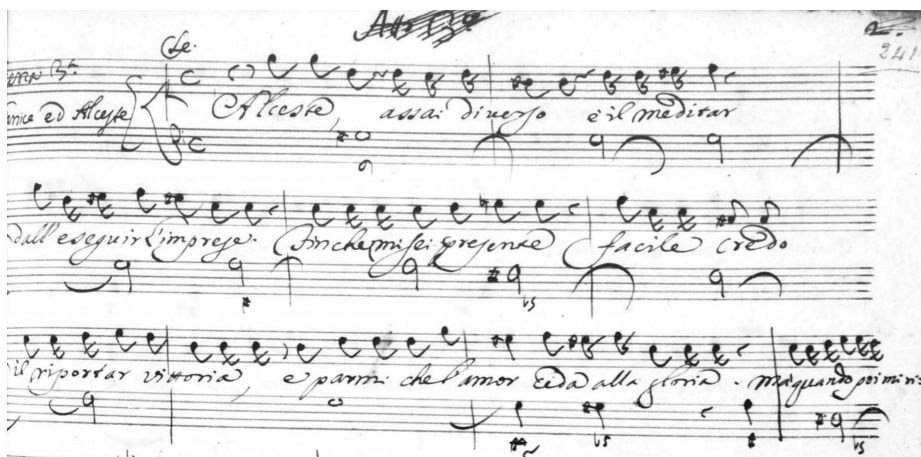 2.
241
Cle.
ed Alceste
Alceste, assai diverso è il meditar
dall'eseguir l'imprese. Finche mi sei presente facile credo
il riportar vittoria, e parmi che l'amor ceda alla gloria. ma quando poi mi ri-